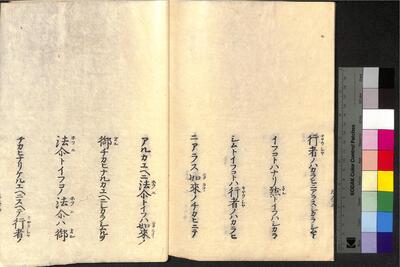 行者ノハカラヒニアラスシカラシムト
イフコトハナリ然トイフハシカラ
シムトイフコトハ行者ノハカラヒ
ニアラス如來ノチカヒニテ
アルカユヘニ法尒トイフハ如來ノ
御チカヒナルカユヘニシカラシムルヲ
法尒トイフコノ法尒ハ御
チカヒナリケルユヘニスヘテ行者ノ